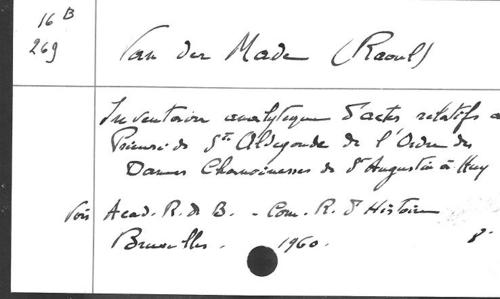 16 B
269
Van der Made (Raoul)
Inventaire analytique d'actes relatifs a
Prieuré de Ste Aldegonde de l'Ordre des
Dames Chanoinesses de St Augustin à Huy
Voir Acad. R. de B. - Com. R. d'Histoire
Bruxelles. 1960. 8°